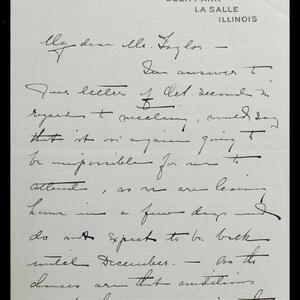 DEER PARK
LA SALLE
ILLINOIS
My dear Mr. Taylor. —
In answer to
your letter of Oct second in
regard to meeting, would say
that it is again going to
be impossible for me to
attend, as we are leaving
home in a few days and
do not expect to be back
until December. — As the
chances are that conditions